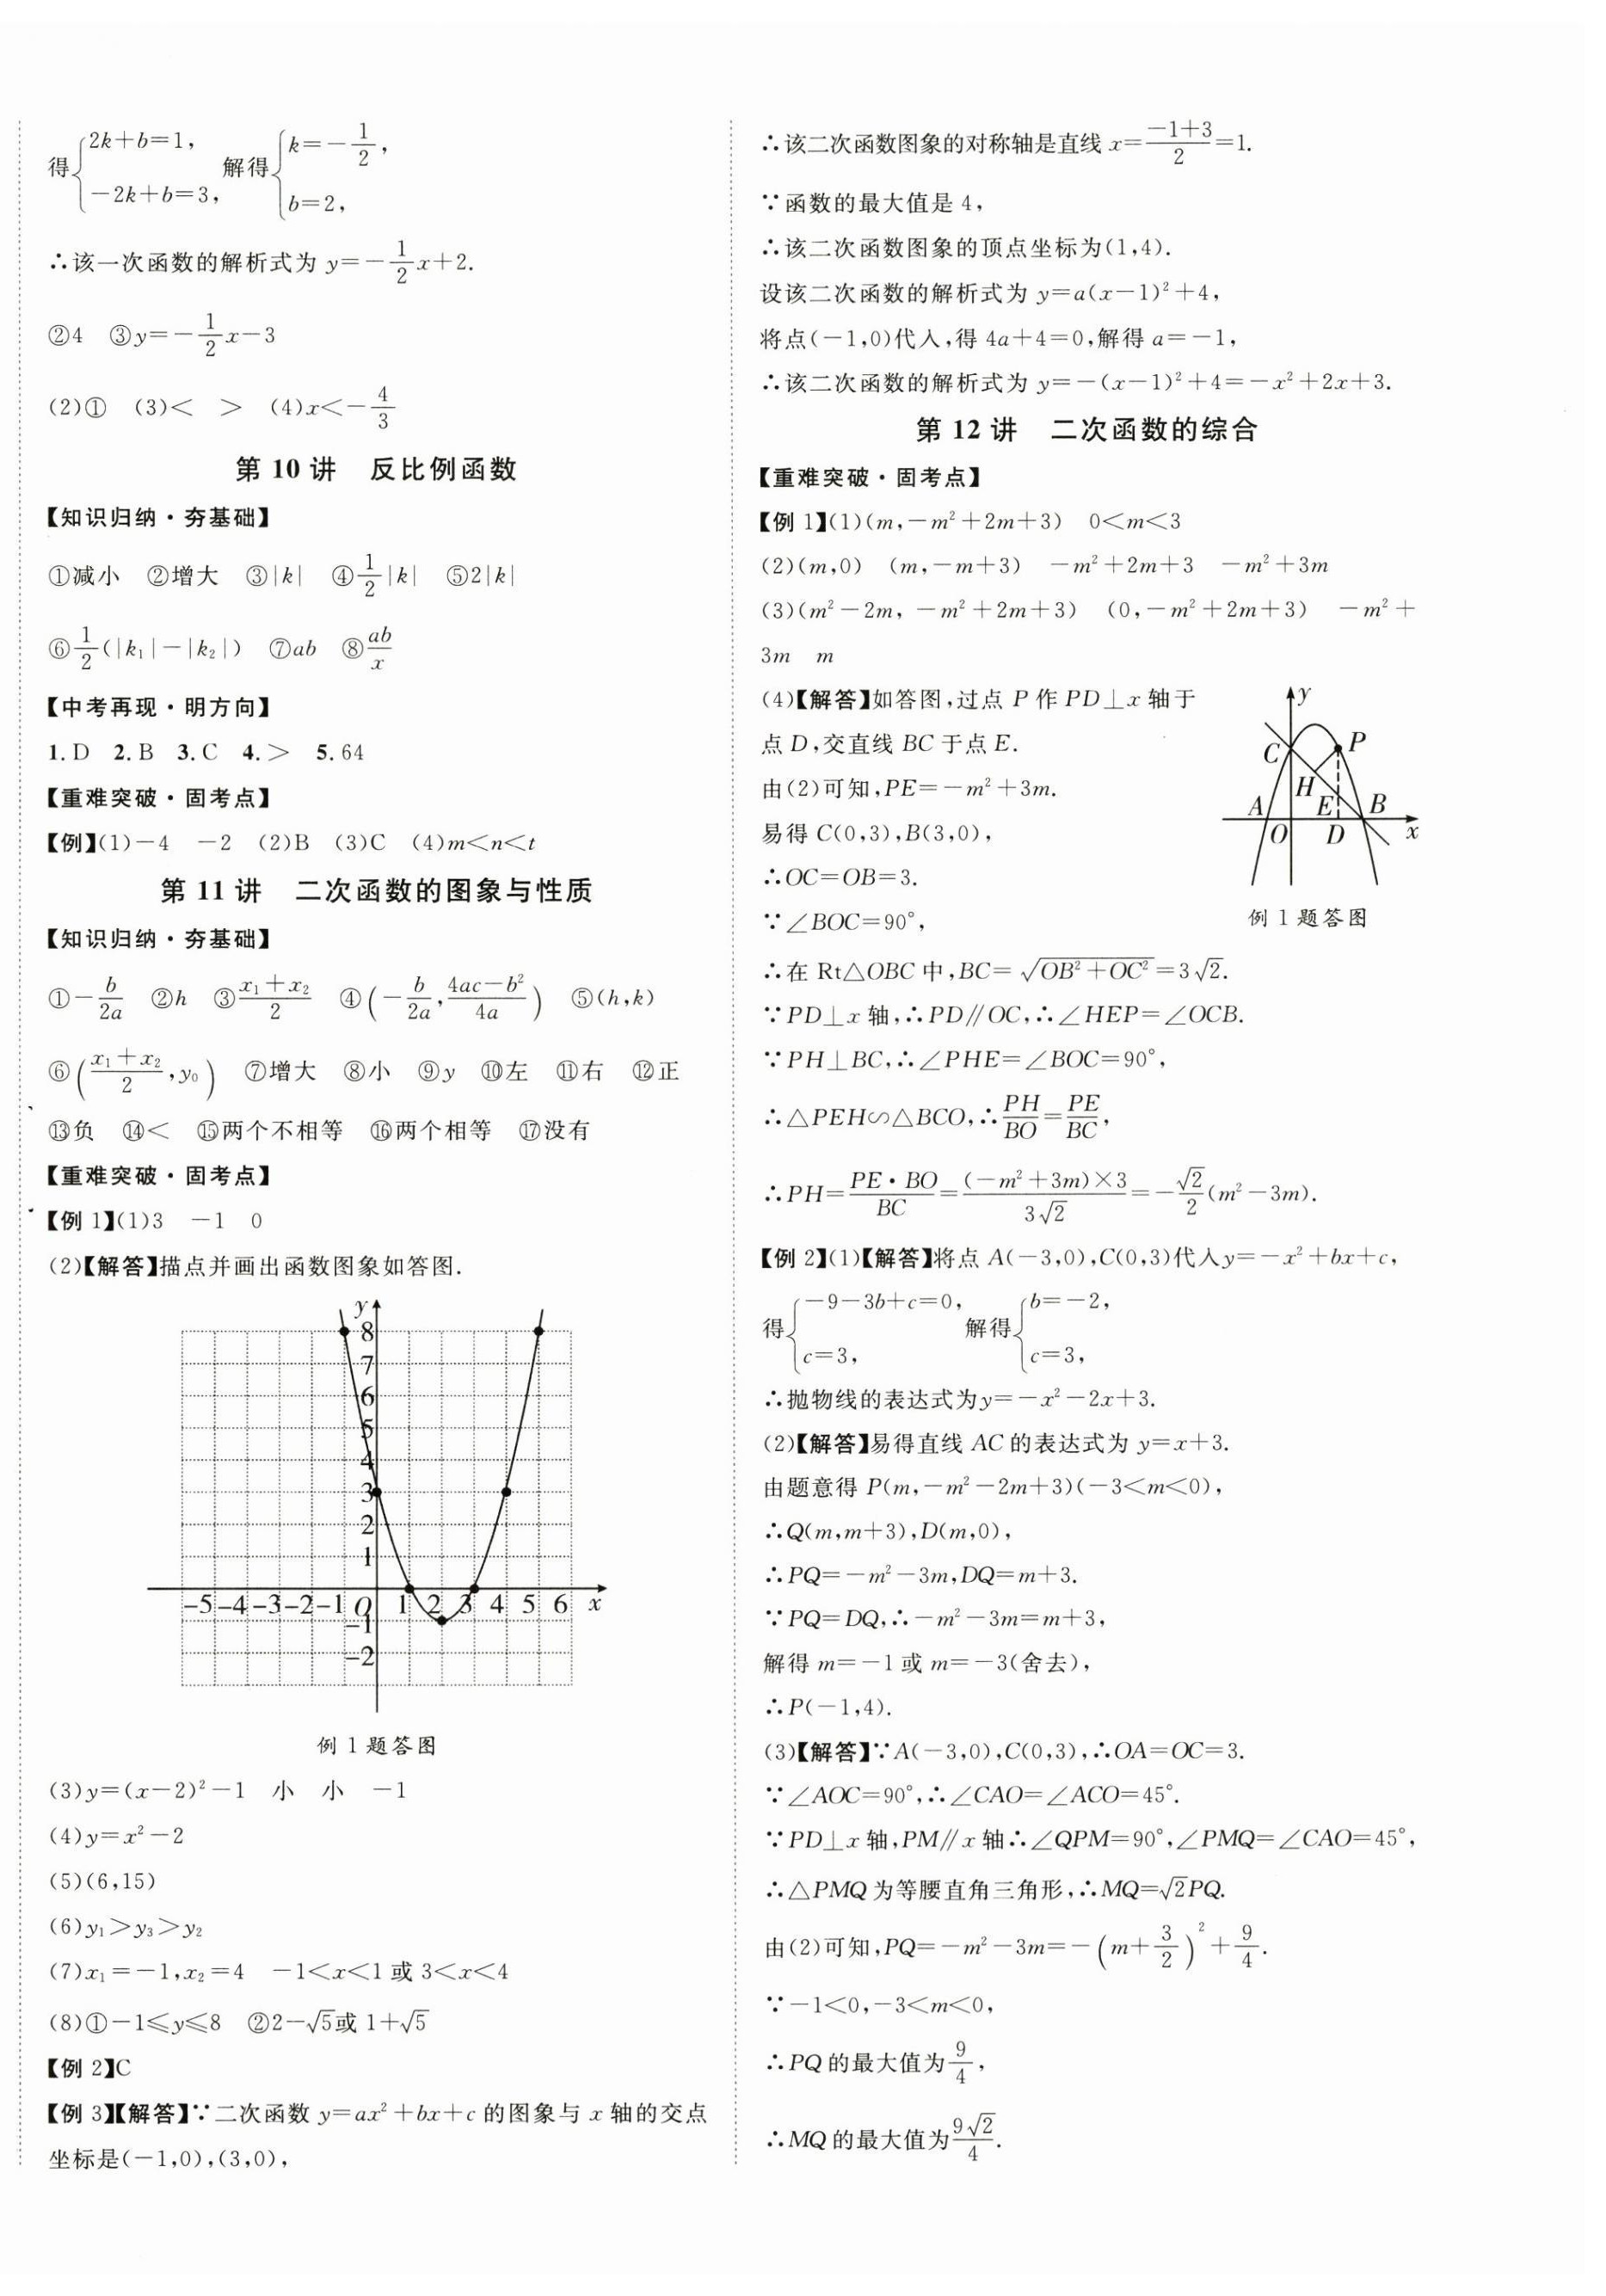 得{2k+b=1, -2k+b=3, 解得{k=-1/2, b=2,
∴该一次函数的解析式为 y=-1/2x+2.
②4 ③y=-1/2x-3
(2)① (3)< > (4)x<-4/3
第 10 讲 反比例函数
【知识归纳·夯基础】
①减小 ②增大 ③|k| ④1/2|k| ⑤2|k|
⑥1/2(|k₁|-|k₂|) ⑦ab ⑧ab/x
【中考再现·明方向】
1.D 2.B 3.C 4.> 5.64
【重难突破·固考点】
【例】(1)-4 -2 (2)B (3)C (4)m<n<t
第 11 讲 二次函数的图象与性质
【知识归纳·夯基础】
①-b/2a ②h ③(x₁+x₂)/2 ④(-b/2a,(4ac-b²)/4a) ⑤(h,k)
⑥((x₁+x₂)/2,y₀) ⑦增大 ⑧小 ⑨y ⑩左 ⑪右 ⑫正
⑬负 ⑭< ⑮两个不相等 ⑯两个相等 ⑰没有
【重难突破·固考点】
【例 1】(1)3 -1 0
(2)【解答】描点并画出函数图象如答图.
y
8
7
6
5
4
3
2
1
-5 -4 -3 -2 -1 O 1 2 3 4 5 6 x
-1
-2
例 1 题答图
(3)y=(x-2)²-1 小 小 -1
(4)y=x²-2
(5)(6,15)
(6)y₁>y₃>y₂
(7)x₁=-1,x₂=4 -1<x<1 或 3<x<4
(8)①-1≤y≤8 ②2-√5或 1+√5
【例 2】C
【例 3】【解答】∵二次函数 y=ax²+bx+c 的图象与 x 轴的交点
坐标是(-1,0),(3,0),
∴该二次函数图象的对称轴是直线 x=(-1+3)/2=1.
∵函数的最大值是 4,
∴该二次函数图象的顶点坐标为(1,4).
设该二次函数的解析式为 y=a(x-1)²+4,
将点(-1,0)代入,得 4a+4=0,解得 a=-1,
∴该二次函数的解析式为 y=-(x-1)²+4=-x²+2x+3.
第 12 讲 二次函数的综合
【重难突破·固考点】
【例 1】(1)(m,-m²+2m+3) 0<m<3
(2)(m,0) (m,-m+3) -m²+2m+3 -m²+3m
(3)(m²-2m,-m²+2m+3) (0,-m²+2m+3) -m²+
3m m
(4)【解答】如答图,过点 P 作 PD⊥x 轴于
点 D,交直线 BC 于点 E.
由(2)可知,PE=-m²+3m.
易得 C(0,3),B(3,0),
∴OC=OB=3.
∵∠BOC=90°,
y
C P
H
A E B
O D x
例 1 题答图
∴在 Rt△OBC 中,BC=√(OB²+OC²)=3√2.
∵PD⊥x 轴,∴PD∥OC,∴∠HEP=∠OCB.
∵PH⊥BC,∴∠PHE=∠BOC=90°,
∴△PEH∽△BCO,∴PH/BO=PE/BC,
∴PH=PE·BO/BC=(-m²+3m)×3/3√2=-√2/2(m²-3m).
【例 2】(1)【解答】将点 A(-3,0),C(0,3)代入y=-x²+bx+c,
得{-9-3b+c=0, c=3, 解得{b=-2, c=3,
∴抛物线的表达式为y=-x²-2x+3.
(2)【解答】易得直线 AC 的表达式为 y=x+3.
由题意得 P(m,-m²-2m+3)(-3<m<0),
∴Q(m,m+3),D(m,0),
∴PQ=-m²-3m,DQ=m+3.
∵PQ=DQ,∴-m²-3m=m+3,
解得 m=-1 或 m=-3(舍去),
∴P(-1,4).
(3)【解答】∵A(-3,0),C(0,3),∴OA=OC=3.
∵∠AOC=90°,∴∠CAO=∠ACO=45°.
∵PD⊥x 轴,PM∥x 轴∴∠QPM=90°,∠PMQ=∠CAO=45°,
∴△PMQ 为等腰直角三角形,∴MQ=√2PQ.
由(2)可知,PQ=-m²-3m=-(m+3/2)²+9/4.
∵-1<0,-3<m<0,
∴PQ 的最大值为9/4,
∴MQ 的最大值为9√2/4.